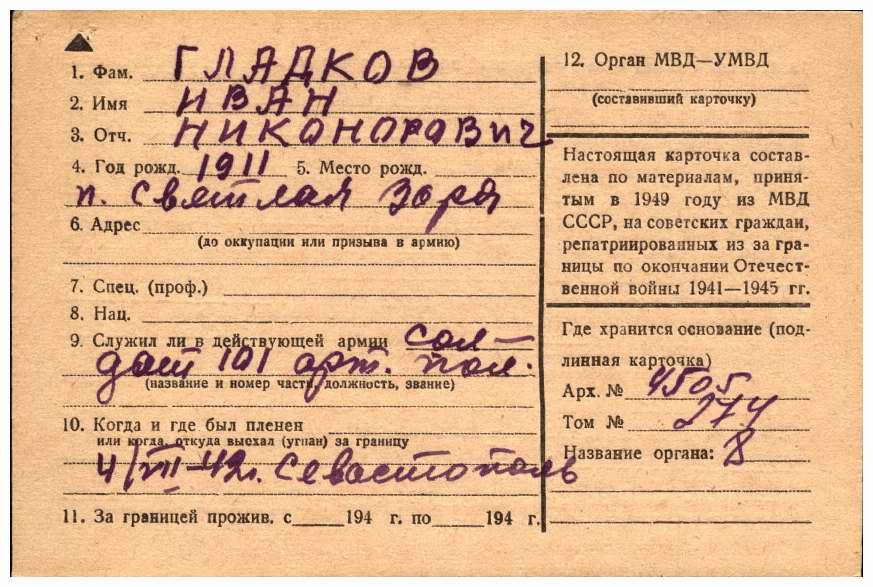 1. Фам. ГЛАДКОВ
2. Имя ИВАН
3. Отч. НИКАНОРАВИЧ
4. Год рожд. 1911 5. Место рожд.
п. Светлая Заря
6. Адрес
(до оккупации или призыва в армию)
7. Спец. (проф.)
8. Нац.
9. Служил ли в действующей армии сол—
дат 101 арт. пол.
(название и номер части, должность, звание)
10. Когда и где был пленен
или когда, откуда выехал (угнан) за границу
4/VII-42г. Севастополь
11. За границей прожив. с 194 г. по 194 г.
12. Орган МВД—УМВД
(составивший карточку)
Настоящая карточка состав-
лена по материалам, приня-
тым в 1949 году из МВД
СССР, на советских граждан,
репатриированных из за гра-
ницы по окончании Отечест-
венной войны 1941—1945 гг.
Где хранится основание (под-
линная карточка)
Арх. № 4505
Том № 274
Название органа: 8